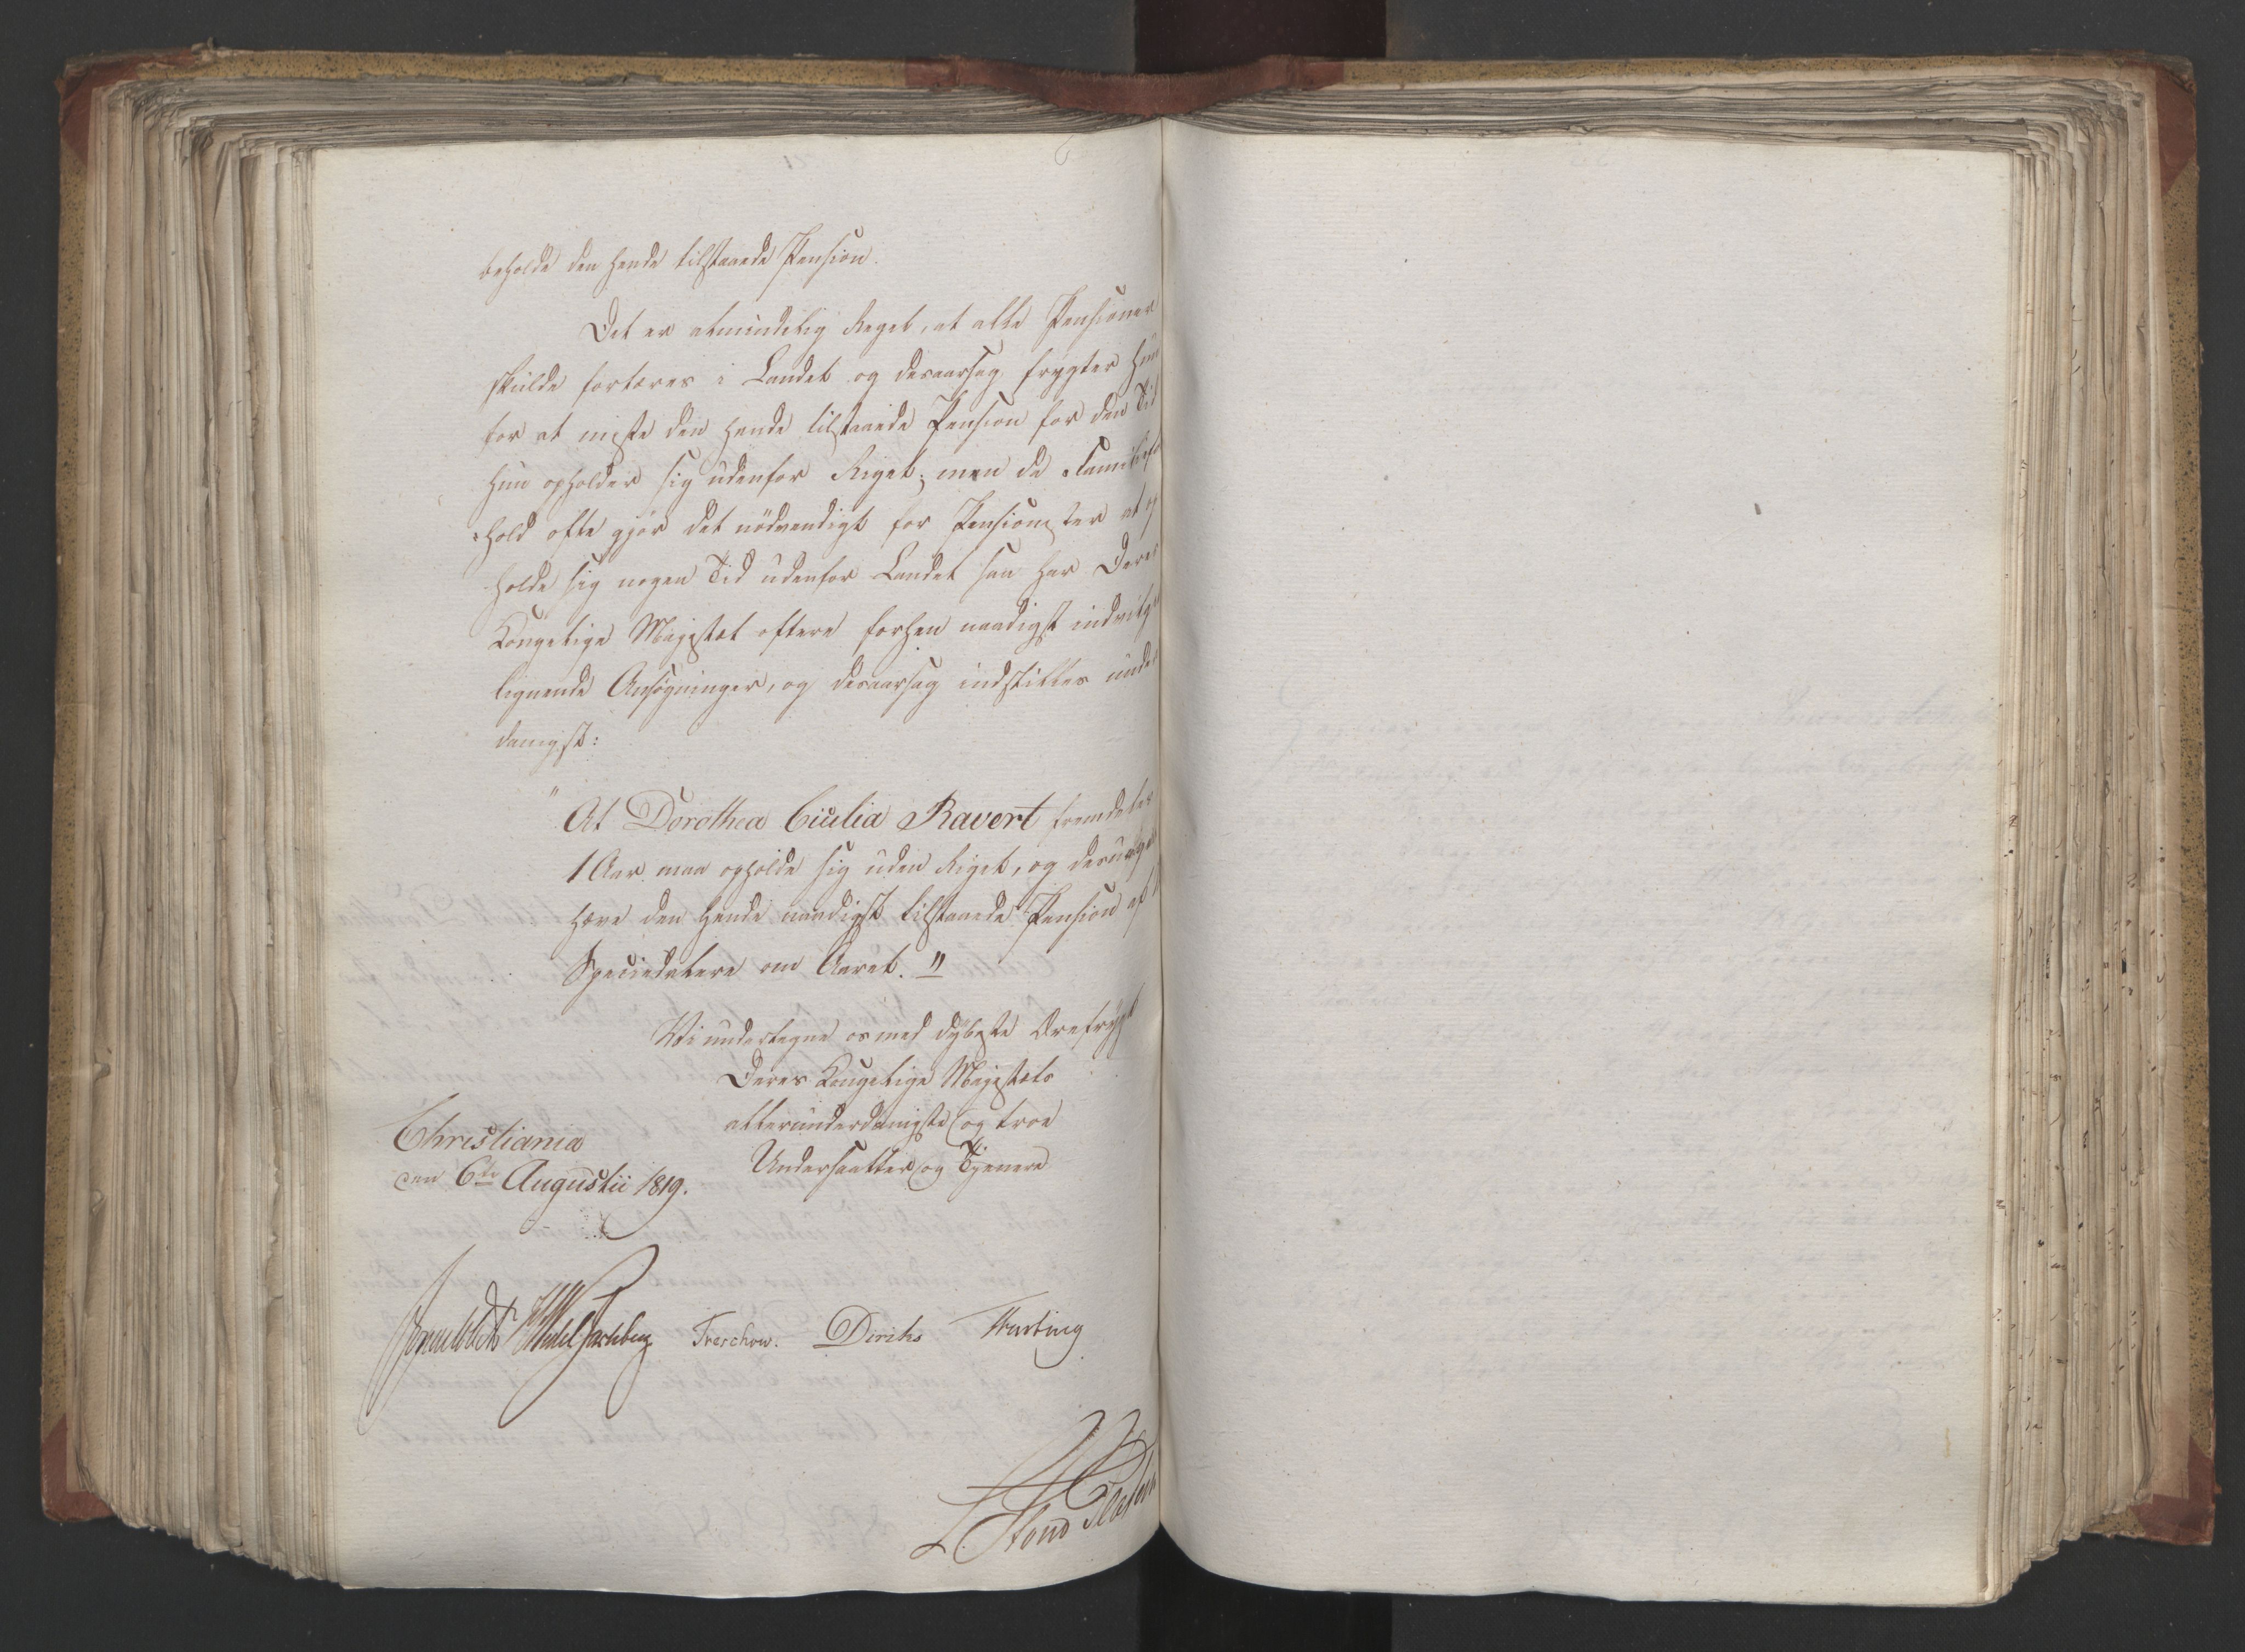 beholde den hende tilstaaede Pension.
Det er almindelig Regel, at alle Pensioner
skulde fortæres i Landet og desaarsag frygter hun
for at miste den hende tilstaaede Pension for den Tid
hun opholder sig udenfor Riget; men da Familiefor
hold ofte gjør det nödvendigt for Pensionister at op
holde sig nogen Tid udenfor Landet saa har Deres
Kongelige Majestæt oftere forhen naadigst indvilget
lignende Ansøgninger, og desaarsag indstilles under
danigst:
" At Dorothea Ciulia Ravert fremdeles
1 Aar maa opholde sig uden Riget, og desuagtet
hæve den hende naadigst tilstaaede Pension af
Speciedalere om Aaret. "
Vi undertegne os med dybeste Ærefrygt
Deres Kongelige Majestæts
allerunderdanigste og troe
Undersaatter og Tjenere
Christiania
den 6te Augustii 1819.
Treschow. Diriks